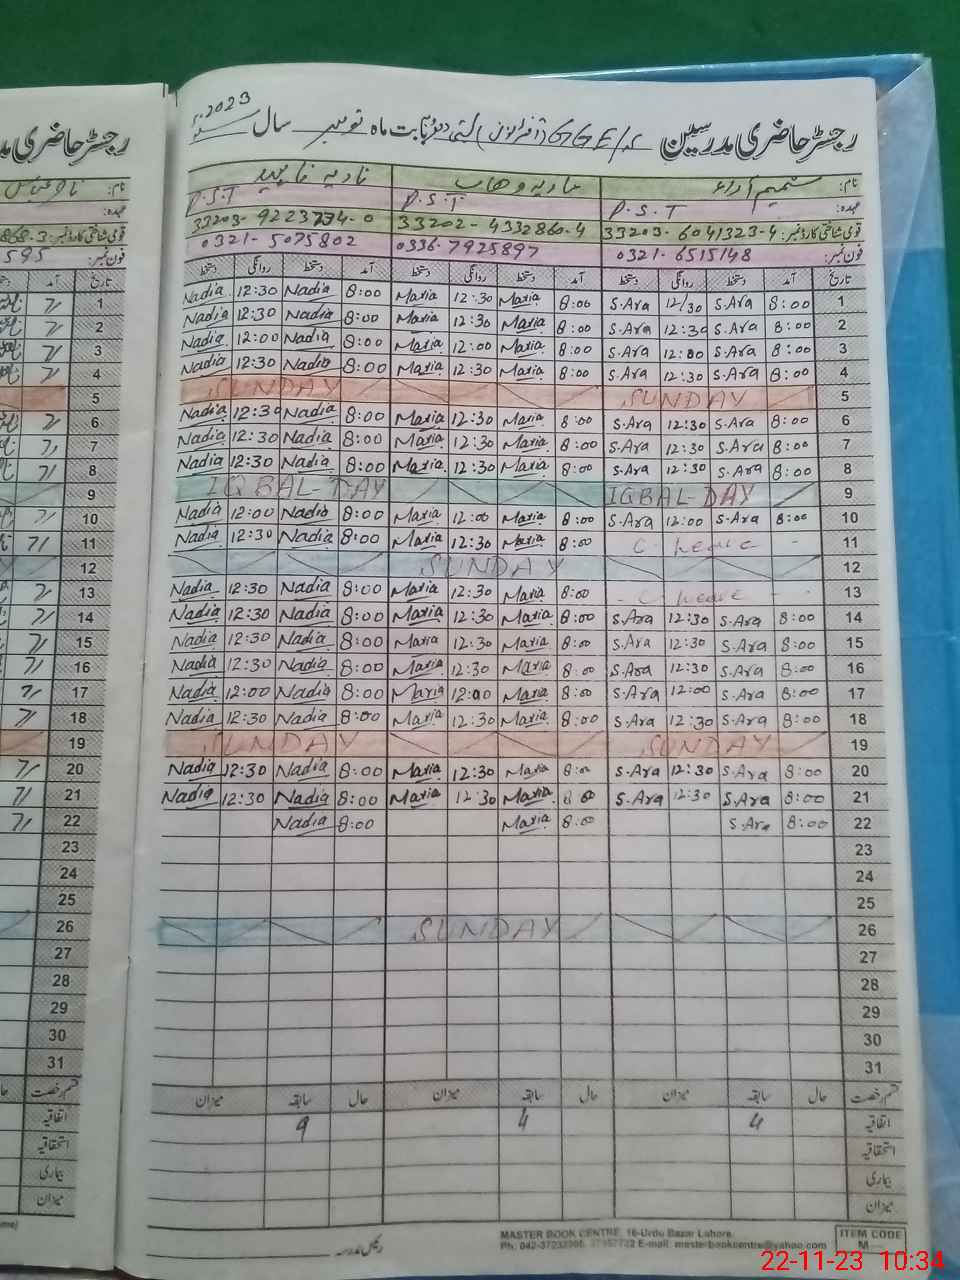 رجسٹر حاضری مدرسین بابت ماہ نومبر سال 2023
نام: شمیم آراء ماریہ وھاب نادیہ
عہدہ: P.S.T P.S.T P.S.T
قومی شناختی کارڈ نمبر: 33203-6041323-4 33202-4332860-4 33203-9223734-0
فون نمبر: 0321-6515148 0336-7925897 0321-5075802
تاریخ آمد دستخط روانگی دستخط آمد دستخط روانگی دستخط آمد دستخط روانگی دستخط
Nadia 12:30 Nadia 8:00 Maria 12:30 Maria 8:00 S.Ara 12/30 S.Ara 8:00 1
Nadia 12:30 Nadia 8:00 Maria 12:30 Maria 8:00 S.Ara 12:30 S.Ara 8:00 2
Nadia 12:00 Nadia 8:00 Maria 12:00 Maria 8:00 S.Ara 12:00 S.Ara 8:00 3
Nadia 12:30 Nadia 8:00 Maria 12:30 Maria 8:00 S.Ara 12:30 S.Ara 8:00 4
SUNDAY SUNDAY 5
Nadia 12:30 Nadia 8:00 Maria 12:30 Maria 8:00 S.Ara 12:30 S.Ara 8:00 6
Nadia 12:30 Nadia 8:00 Maria 12:30 Maria 8:00 S.Ara 12:30 S.Ara 8:00 7
Nadia 12:30 Nadia 8:00 Maria 12:30 Maria 8:00 S.Ara 12:30 S.Ara 8:00 8
IQBAL-DAY IQBAL-DAY 9
Nadia 12:00 Nadia 8:00 Maria 12:00 Maria 8:00 S.Ara 12:00 S.Ara 8:00 10
Nadia 12:30 Nadia 8:00 Maria 12:30 Maria 8:00 C. leave - 11
SUNDAY 12
Nadia 12:30 Nadia 8:00 Maria 12:30 Maria 8:00 - C. leave - - 13
Nadia 12:30 Nadia 8:00 Maria 12:30 Maria 8:00 S.Ara 12:30 S.Ara 8:00 14
Nadia 12:30 Nadia 8:00 Maria 12:30 Maria 8:00 S.Ara 12:30 S.Ara 8:00 15
Nadia 12:30 Nadia 8:00 Maria 12:30 Maria 8:00 S.Ara 12:30 S.Ara 8:00 16
Nadia 12:00 Nadia 8:00 Maria 12:00 Maria 8:00 S.Ara 12:00 S.Ara 8:00 17
Nadia 12:30 Nadia 8:00 Maria 12:30 Maria 8:00 S.Ara 12:30 S.Ara 8:00 18
SUNDAY SUNDAY 19
Nadia 12:30 Nadia 8:00 Maria 12:30 Maria 8:00 S.Ara 12:30 S.Ara 8:00 20
Nadia 12:30 Nadia 8:00 Maria 12:30 Maria 8:00 S.Ara 12:30 S.Ara 8:00 21
Nadia 8:00 Maria 8:00 S.Ara 8:00 22
23
24
25
SUNDAY 26
27
28
29
30
31
قسم رخصت حال سابقہ میزان حال سابقہ میزان حال سابقہ میزان
اتفاقیہ 4 4 9
استحقاقیہ
بیماری
میزان
رئیس مدرسہ
MASTER BOOK CENTRE, 16-Urdu Bazar Lahore.
E-mail: masterbookcentre@yahoo.com
ITEM CODE
M
22-11-23 10:34